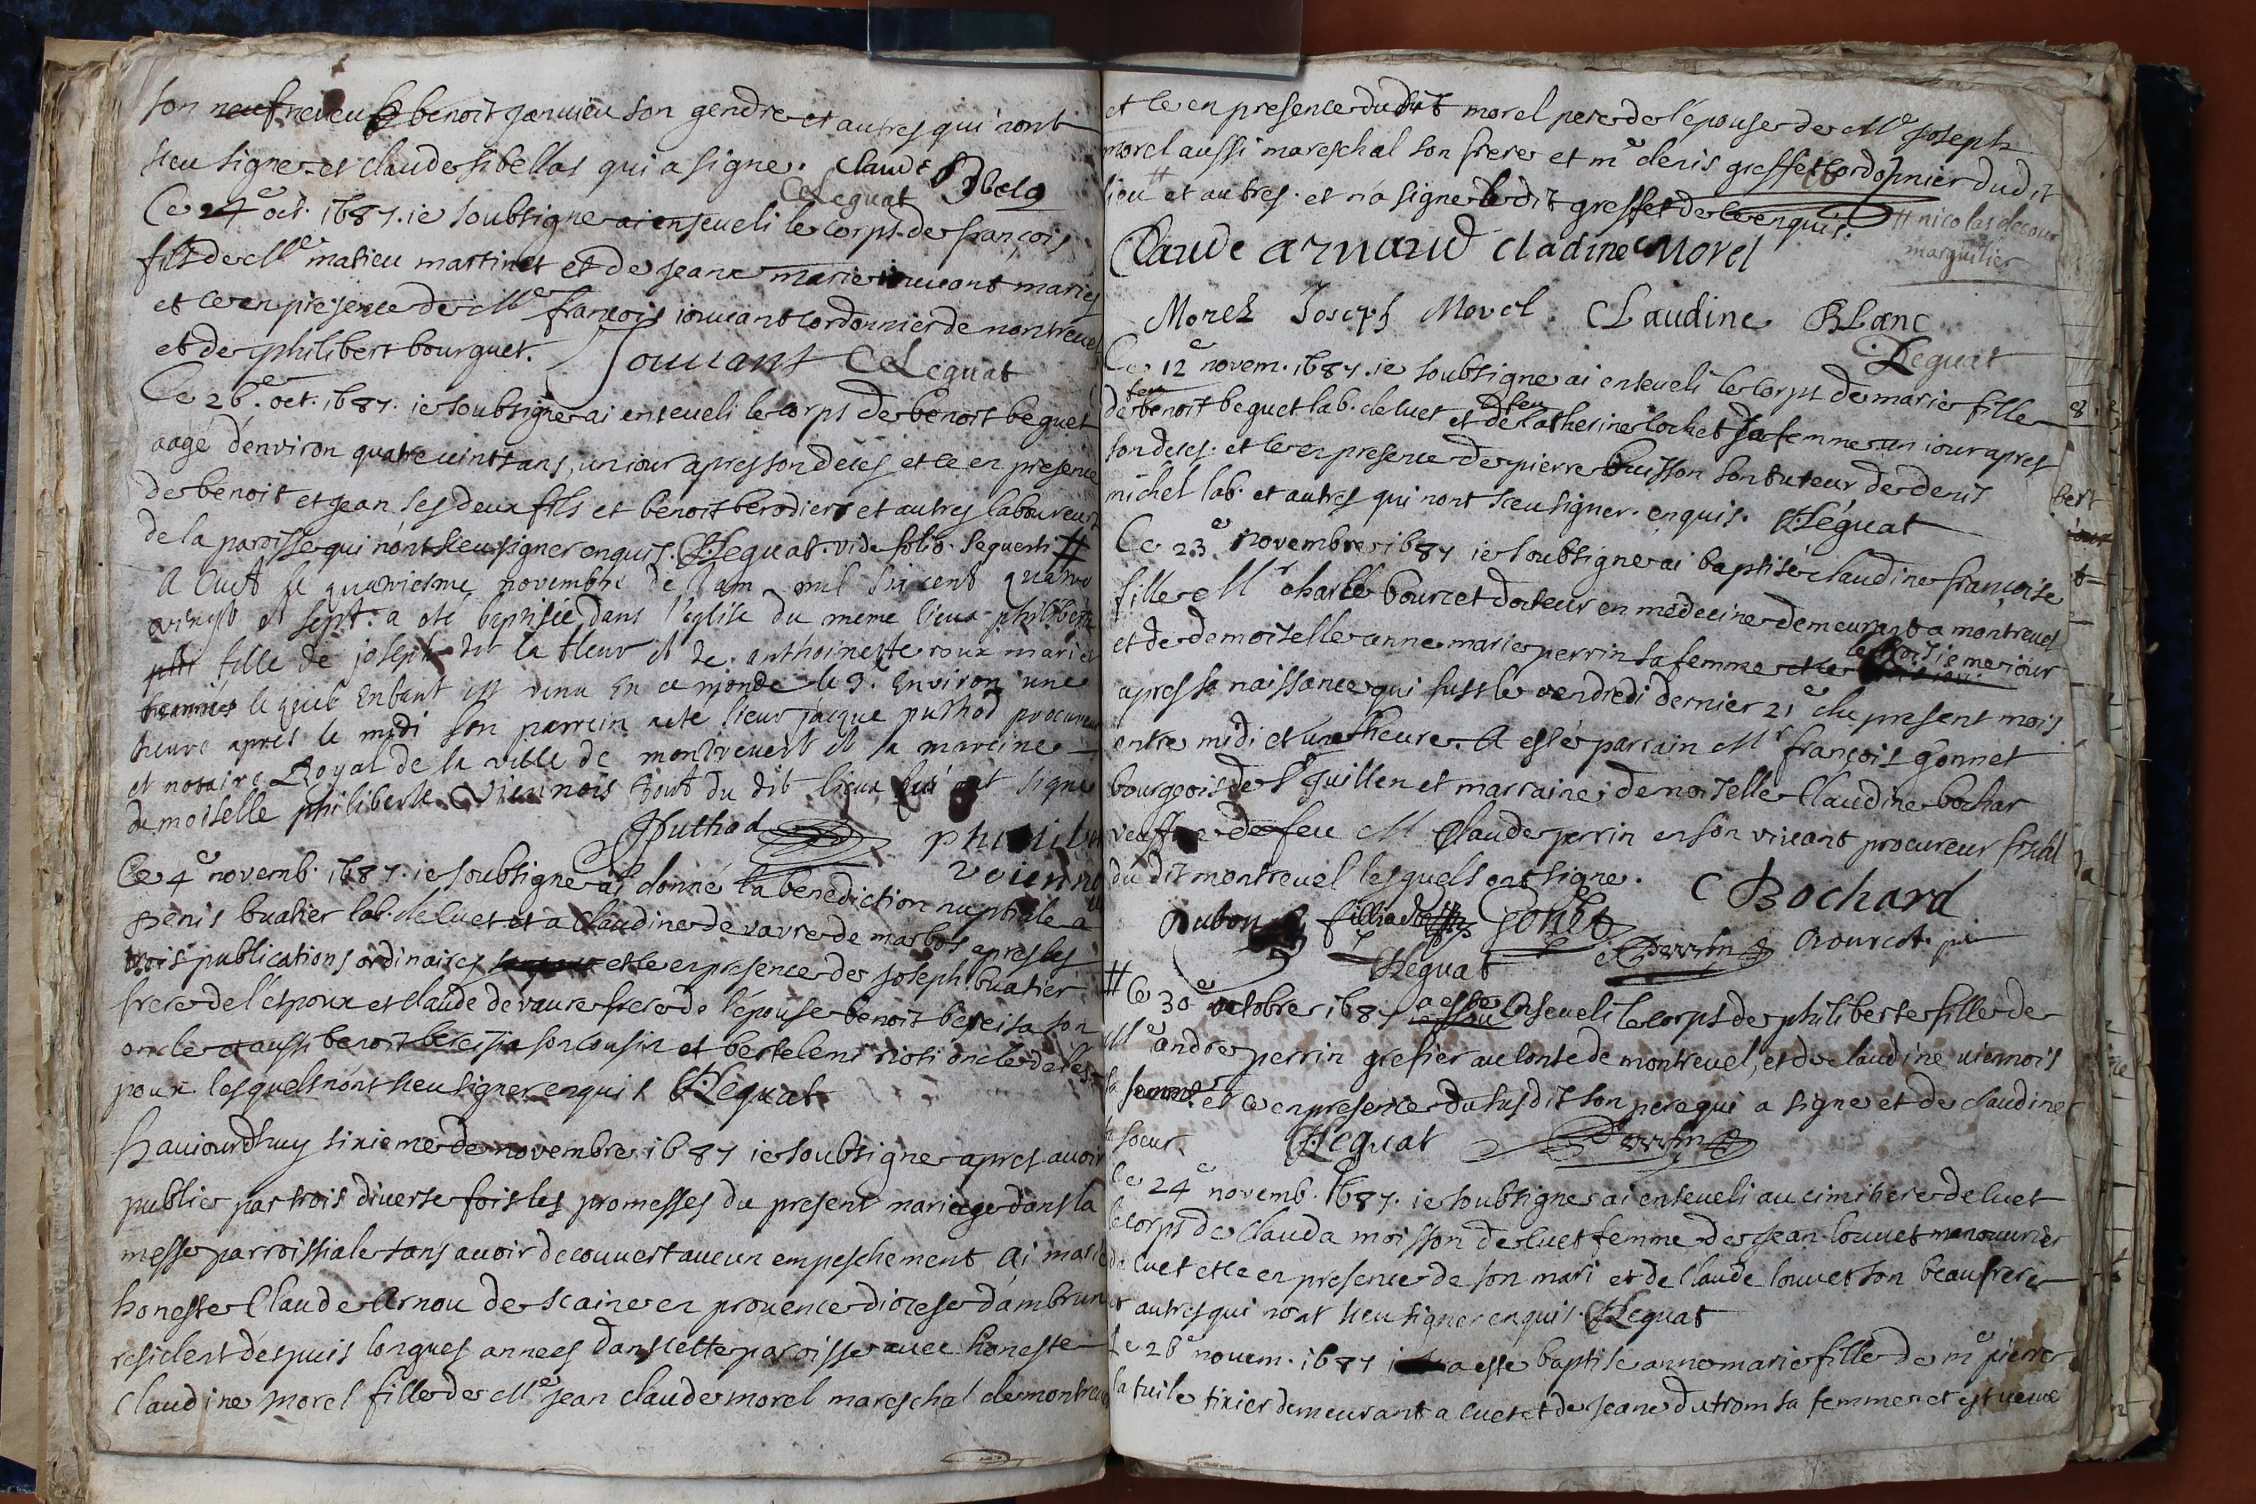 son neuf neveu benoit januieu son gendre et autres qui n'ont
sceu signer et claude sibellas qui a signe. Claude Sibela
CLeguat
Ce 24e oct. 1687. ie soubsigne ai enseveli le corps de françois
fils de Me matieu martinet et de jeane marie iouuant maries
et ce en presence de Me françois iouuant cordonnier de montreuel
et de philibert bourguet. Jouuant CLeguat
Ce 26e. oct. 1687. ie soubsigne ai enseveli le corps de benoit beguet
aagé d'environ quatre vints ans, un iour apres son deces et ce en presence
de benoit et jean ses deux fils et benoit berodier et autres laboureurs
de la paroisse qui n'ont sceu signer enquis. CLeguat. vide folio sequenti #
A Cuet le quatriesme novembre de l'an mil six cent quatre
vingt et sept. a esté baptisée dans l'eglise du meme lieu philiberte
fille de joseph dit la fleur et de anthoinette roux mariez
le quel Enfant est venu En ce monde le 3. Environ une
heure apres le midi son parrein acte sieur jacque puthod procureur
et notaire Royal de la ville de montrevert et sa mareine
demoiselle philiberte Viennois tout du dit lieux qui ont signe
JPuthod philiberte
voiennois
Ce 4e novemb. 1687. ie soubsigne ai donné la benediction nuptiale a
Denis buatier lab. de cuet et a claudine de vavre de marbos apres les
trois publications ordinaires et ce en presence de joseph buatier
frere de l'espoux et claude de vavre frere de l'epouse benoit bereisia son
oncle et aussi benoit bereisia son cousin et bertelent rioti oncle de l'es-
poux lesquels n'ont sceu signer enquis CLeguat
haujourdhuy sixieme de novembre 1687 ie soubsigne apres avoir
publier par trois diverse fois les promesses du present mariage dans la
messe parroissiale sans avoir decouvert aucun empeschement Ai marié
honeste Claude Arnou de scaine en provence diocese d'ambrun
residant depuis longues annees dans cette paroisse avec honeste
Claudine Morel fille de Me jean claude morel mareschal de montreuel
et ce en presence dudit morel pere de l'épouse de Me Joseph
morel aussi mareschal son frere et me denis greffet cordonnier dudit
lieu # et autres. et n'a signe le dit greffet de ce enquis.
# nicolas decour
marguilier
Claude arnaud cladine Morel
Morel Joseph Morel. CLaudine BLanc
CLeguat
Ce 12e novem. 1687. ie soubsigne ai enseveli le corps de marie fille
de feu benoit beguet lab. de cuet et de feu catherine lochet sa femme un iour apres
son deces. et ce en presence de pierre buisson son tuteur, de denis
michel lab. et autres qui n'ont sceu signer. enquis. CLeguat
Ce 23e novembre 1687 ie soubsigne ai baptisé claudine françoise
fille Mr charle bourcet docteur en medecine demeurant a montreuel
et de demoiselle anne marie perrin sa femme le troisieme iour
apres sa naissance qui fust le vendredi dernier 21e du present mois
entre midi et une heure. A esté parrain Mr françois Gonnet
bourgeois de st quillen et marraine demoiselle Claudine bochar
veuffue de feu M Claude perrin en son vivant procureur fiscal
du dit montreuel lesquels ont signe. C Bochard
Dubou Gonet Perrin Bourcet. pe
CLeguat
# Ce 30e octobre 1687 a esté enseveli le corps de philiberte fille de
Me andre perrin grefier au conte de montreuel, et de claudine viennois
sa femme et ce en presence du susdit son pere qui a signe et de claudine
sa soeur. CLeguat Perrin
Ce 24e novemb. 1687. ie soubsigne ai enseveli au cimitiere de cuet
le corps de clauda moisson de cuet femme de jean louuet manouurier
de cuet et ce en presence de son mari et de claude louuet son beaufrere
et autres qui n'ont sceu signer enquis. CLeguat
Le 26e novem. 1687 a esté baptise anne marie fille de me pierre
la tuile tixier demeurant a cuet et de jeane dutrom sa femme et est venue